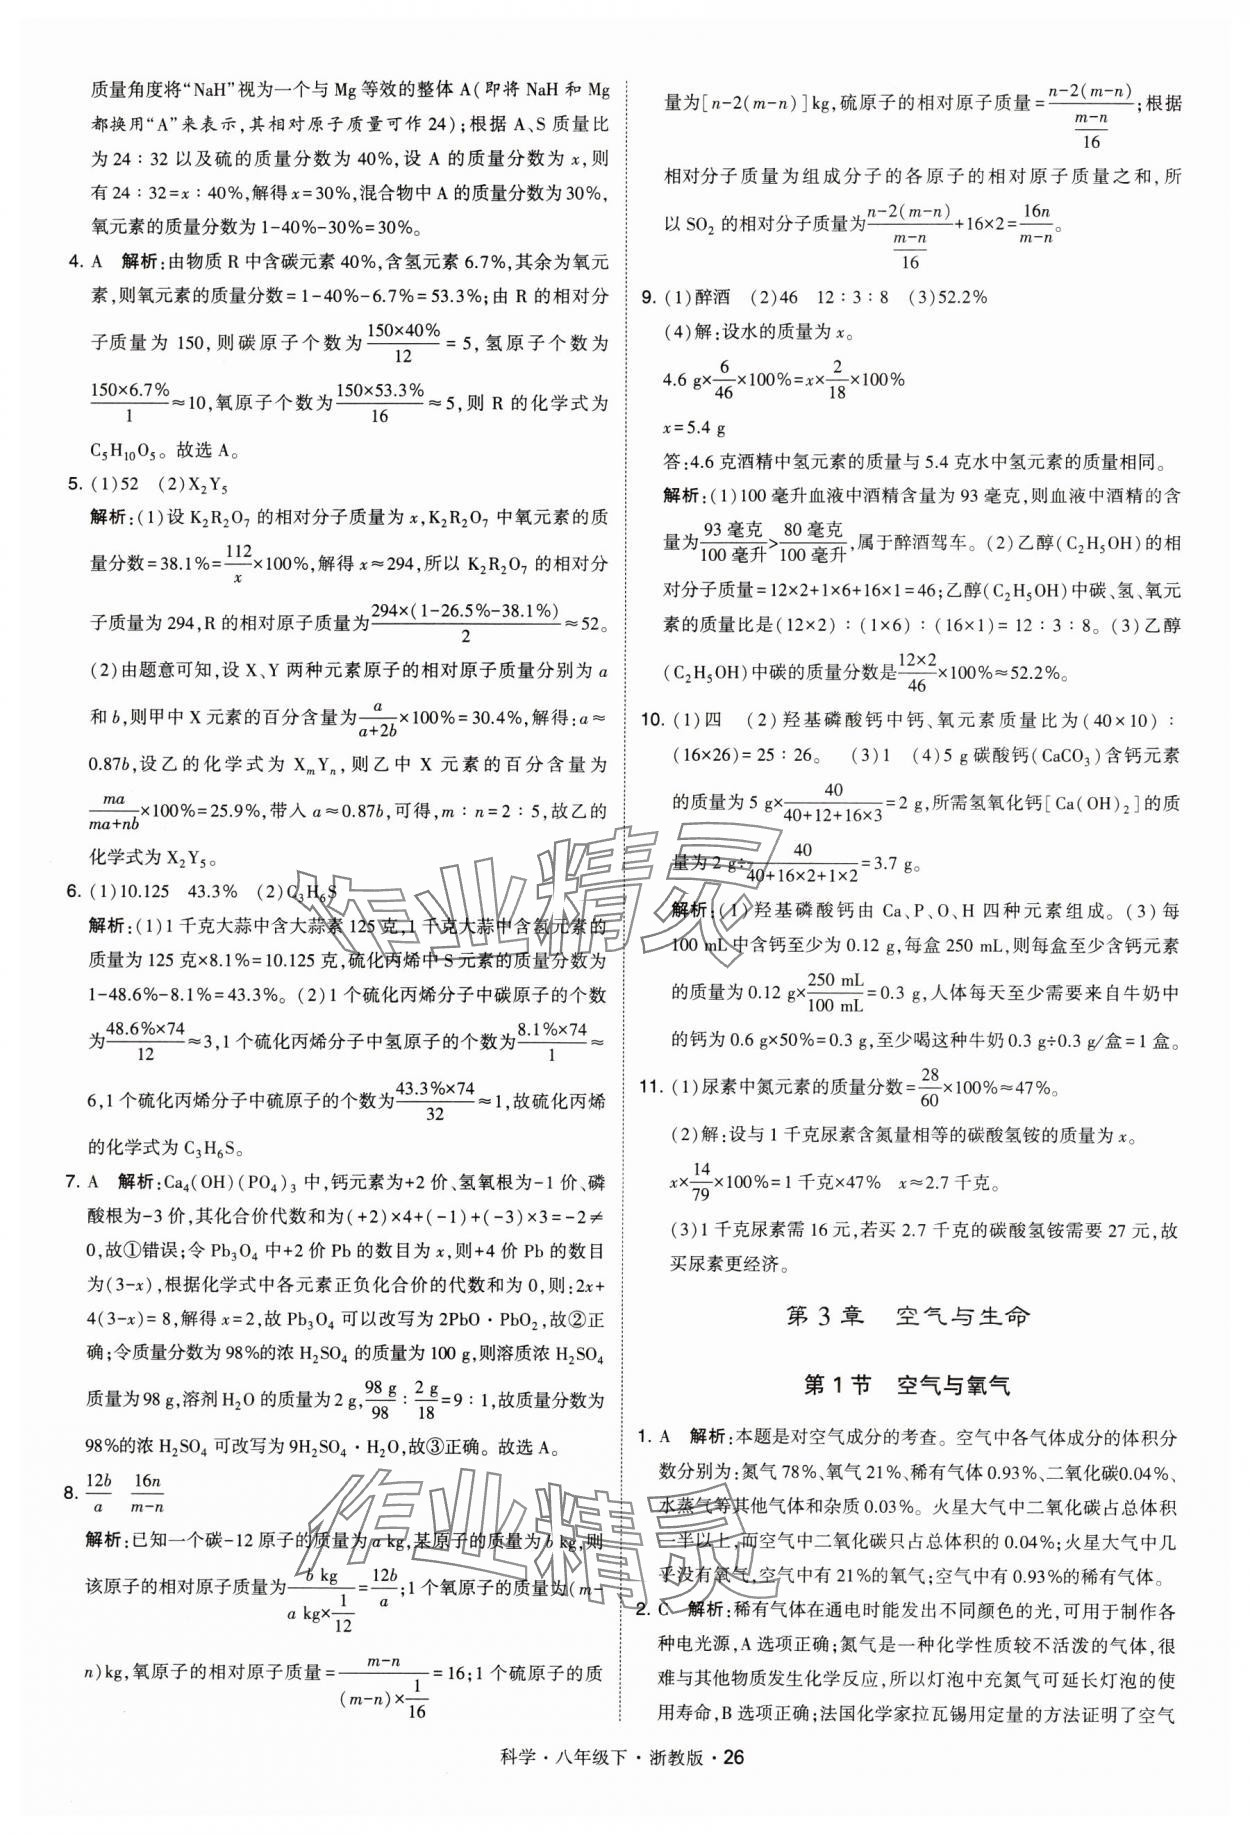 质量角度将“NaH”视为一个与 Mg 等效的整体 A(即将 NaH 和 Mg
都换用“A”来表示,其相对原子质量可作 24);根据 A、S 质量比
为 24∶32 以及硫的质量分数为 40%,设 A 的质量分数为 x,则
有 24∶32=x∶40%,解得 x=30%,混合物中 A 的质量分数为 30%,
氧元素的质量分数为 1-40%-30%=30%。
4. A 解析:由物质 R 中含碳元素 40%,含氢元素 6.7%,其余为氧元
素,则氧元素的质量分数=1-40%-6.7%=53.3%;由 R 的相对分
子质量为 150,则碳原子个数为 150×40%/12 = 5,氢原子个数为
150×6.7%/1 ≈10,氧原子个数为 150×53.3%/16 ≈5,则 R 的化学式为
C₅H₁₀O₅。故选 A。
5. (1)52 (2)X₂Y₅
解析:(1)设 K₂R₂O₇ 的相对分子质量为 x,K₂R₂O₇ 中氧元素的质
量分数=38.1%=112/x×100%,解得 x≈294,所以 K₂R₂O₇ 的相对分
子质量为 294,R 的相对原子质量为 294×(1-26.5%-38.1%)/2 ≈52。
(2)由题意可知,设 X、Y 两种元素原子的相对原子质量分别为 a
和 b,则甲中 X 元素的百分含量为 a/(a+2b)×100%=30.4%,解得:a≈
0.87b,设乙的化学式为 XₘYₙ,则乙中 X 元素的百分含量为
ma/(ma+nb)×100%=25.9%,带入 a≈0.87b,可得,m∶n=2∶5,故乙的
化学式为 X₂Y₅。
6. (1)10.125 43.3% (2)C₃H₆S
解析:(1)1 千克大蒜中含大蒜素 125 克,1 千克大蒜中含氢元素的
质量为 125 克×8.1%=10.125 克,硫化丙烯中 S 元素的质量分数为
1-48.6%-8.1%=43.3%。(2)1 个硫化丙烯分子中碳原子的个数
为 48.6%×74/12 ≈3,1 个硫化丙烯分子中氢原子的个数为 8.1%×74/1 ≈
6,1 个硫化丙烯分子中硫原子的个数为 43.3%×74/32 ≈1,故硫化丙烯
的化学式为 C₃H₆S。
7. A 解析:Ca₄(OH)(PO₄)₃ 中,钙元素为+2 价、氢氧根为-1 价、磷
酸根为-3 价,其化合价代数和为(+2)×4+(-1)+(-3)×3=-2≠
0,故①错误;令 Pb₃O₄ 中+2 价 Pb 的数目为 x,则+4 价 Pb 的数目
为(3-x),根据化学式中各元素正负化合价的代数和为 0,则:2x+
4(3-x)=8,解得 x=2,故 Pb₃O₄ 可以改写为 2PbO·PbO₂,故②正
确;令质量分数为 98%的浓 H₂SO₄ 的质量为 100 g,则溶质浓 H₂SO₄
质量为 98 g,溶剂 H₂O 的质量为 2 g,98 g/98∶2 g/18=9∶1,故质量分数为
98%的浓 H₂SO₄ 可改写为 9H₂SO₄·H₂O,故③正确。故选 A。
8. 12b/a 16n/(m-n)
解析:已知一个碳-12 原子的质量为 a kg,某原子的质量为 b kg,则
该原子的相对原子质量为 b kg/(a kg×1/12)=12b/a;1 个氧原子的质量为(m-
n)kg,氧原子的相对原子质量=(m-n)/((m-n)×1/16)=16;1 个硫原子的质
量为[n-2(m-n)]kg,硫原子的相对原子质量=(n-2(m-n))/((m-n)/16);根据
相对分子质量为组成分子的各原子的相对原子质量之和,所
以 SO₂ 的相对分子质量为(n-2(m-n))/((m-n)/16)+16×2=16n/(m-n)。
9. (1)醉酒 (2)46 12∶3∶8 (3)52.2%
(4)解:设水的质量为 x。
4.6 g×6/46×100%=x×2/18×100%
x=5.4 g
答:4.6 克酒精中氢元素的质量与 5.4 克水中氢元素的质量相同。
解析:(1)100 毫升血液中酒精含量为 93 毫克,则血液中酒精的含
量为 93 毫克/100 毫升>80 毫克/100 毫升,属于醉酒驾车。(2)乙醇(C₂H₅OH)的相
对分子质量=12×2+1×6+16×1=46;乙醇(C₂H₅OH)中碳、氢、氧元
素的质量比是(12×2)∶(1×6)∶(16×1)=12∶3∶8。(3)乙醇
(C₂H₅OH)中碳的质量分数是 12×2/46×100%≈52.2%。
10. (1)四 (2)羟基磷酸钙中钙、氧元素质量比为(40×10)∶
(16×26)=25∶26。 (3)1 (4)5 g 碳酸钙(CaCO₃)含钙元素
的质量为 5 g×40/(40+12+16×3)=2 g,所需氢氧化钙[Ca(OH)₂]的质
量为 2 g÷40/(40+16×2+1×2)=3.7 g。
解析:(1)羟基磷酸钙由 Ca、P、O、H 四种元素组成。(3)每
100 mL 中含钙至少为 0.12 g,每盒 250 mL,则每盒至少含钙元素
的质量为 0.12 g×250 mL/100 mL=0.3 g,人体每天至少需要来自牛奶中
的钙为 0.6 g×50%=0.3 g,至少喝这种牛奶 0.3 g÷0.3 g/盒=1 盒。
11. (1)尿素中氮元素的质量分数=28/60×100%≈47%。
(2)解:设与 1 千克尿素含氮量相等的碳酸氢铵的质量为 x。
x×14/79×100%=1 千克×47% x≈2.7 千克。
(3)1 千克尿素需 16 元,若买 2.7 千克的碳酸氢铵需要 27 元,故
买尿素更经济。
第 3 章 空气与生命
第 1 节 空气与氧气
1. A 解析:本题是对空气成分的考查。空气中各气体成分的体积分
数分别为:氮气 78%、氧气 21%、稀有气体 0.93%、二氧化碳0.04%、
水蒸气等其他气体和杂质 0.03%。火星大气中二氧化碳占总体积
一半以上,而空气中二氧化碳只占总体积的 0.04%;火星大气中几
乎没有氧气,空气中有 21%的氧气;空气中有 0.93%的稀有气体。
2. C 解析:稀有气体在通电时能发出不同颜色的光,可用于制作各
种电光源,A 选项正确;氮气是一种化学性质较不活泼的气体,很
难与其他物质发生化学反应,所以灯泡中充氮气可延长灯泡的使
用寿命,B 选项正确;法国化学家拉瓦锡用定量的方法证明了空气
科学·八年级下·浙教版·26
作业精灵
作业精灵